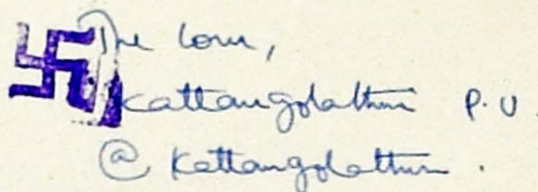 The Com,
Kattangolathur P.U.
@ Kattangolathur.